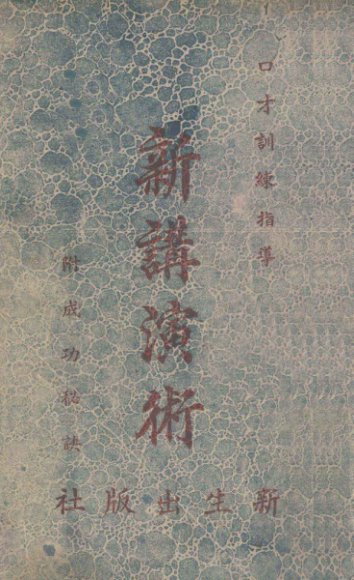 口才訓練指導
新講演術
附成功秘訣
新生出版社